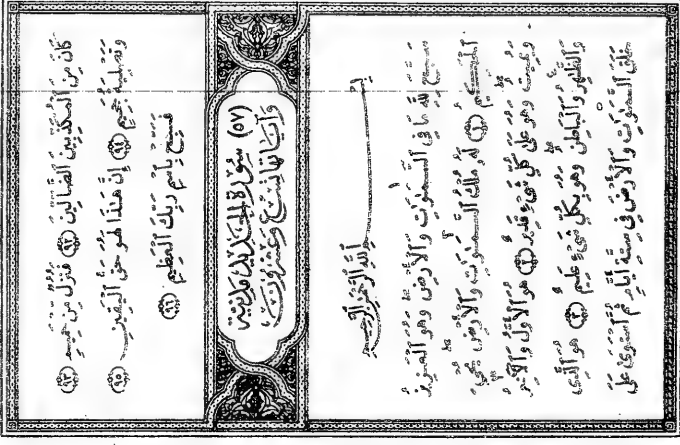 كَانَ مِنَ ٱلْمُكَذِّبِينَ ٱلضَّآلِّينَ ﴿٩٢﴾ فَنُزُلٌ مِّنْ حَمِيمٍ ﴿٩٣﴾
وَتَصْلِيَةُ جَحِيمٍ ﴿٩٤﴾ إِنَّ هَٰذَا لَهُوَ حَقُّ ٱلْيَقِينِ ﴿٩٥﴾
فَسَبِّحْ بِٱسْمِ رَبِّكَ ٱلْعَظِيمِ ﴿٩٦﴾
(٥٧) سُورَةُ الحَدِيدِ مَدَنِيَّة
وَآيَاتُهَا تِسْعٌ وَعِشْرُونَ
بِسْمِ ٱللَّهِ ٱلرَّحْمَٰنِ ٱلرَّحِيمِ
سَبَّحَ لِلَّهِ مَا فِى ٱلسَّمَٰوَٰتِ وَٱلْأَرْضِ وَهُوَ ٱلْعَزِيزُ
ٱلْحَكِيمُ ﴿١﴾ لَهُۥ مُلْكُ ٱلسَّمَٰوَٰتِ وَٱلْأَرْضِ يُحْىِۦ
وَيُمِيتُ وَهُوَ عَلَىٰ كُلِّ شَىْءٍ قَدِيرٌ ﴿٢﴾ هُوَ ٱلْأَوَّلُ وَٱلْآخِرُ
وَٱلظَّٰهِرُ وَٱلْبَاطِنُ وَهُوَ بِكُلِّ شَىْءٍ عَلِيمٌ ﴿٣﴾ هُوَ ٱلَّذِى
خَلَقَ ٱلسَّمَٰوَٰتِ وَٱلْأَرْضَ فِى سِتَّةِ أَيَّامٍ ثُمَّ ٱسْتَوَىٰ عَلَى